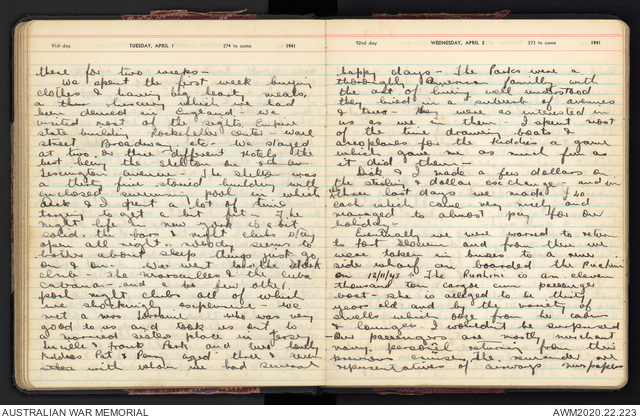 91st day TUESDAY, APRIL 1 274 to come 1941
there for two weeks –
We spent the first week buying
clothes & having big hearty meals,
a thing luxury which we had
been denied in England – We
visited most of the sights, Empire
state building Rockefeller center – wall
street Broadway etc – We stayed
at two or three different Hotels the
best being the Shelton on
Lexington avenue – The Shelton was
a thirty five storied building with
enclosed swimming pool in which
Dick & I spent a lot of time
trying to get a bit fit – The
night life in new york is a bit
solid the bars & night clubs stay
open all night – nobody seems to
bother about sleep things just go
on & on – we went to the Stork
club – The Marseilles & the Cuba
cabana – and a few other
posh night clubs all of which
we shockingly expensive – we
met a Mrs who was very
good to us and took us out to
a married sisters place in Jersey
Lucille & Frank Park and two lovely
kiddies Pat & Penny aged three & seven
with whom we had several
92nd day WEDNESDAY, APRIL 2 273 to come 1941
happy days – The Parks were a
thoroughly American family with
the art of living well understood
they lived in a suburb of avenues
& trees – they were as interested in
us as we in them – I spent most
of the time drawing boats &
aeroplanes for the kiddies a game
which gave me as much fun as
it did them –
Dick & I made a few dollars on
the sterling & dollar exchange – and in
three last days we made
each which came very nicely and
managed to almost pay for our
holiday –
Eventually we were warned to return
to Fort Slocum and from there we
were taken in buses to a new
side wharf an boarded the Ruahine
on 12/11/43 – The Ruahine is an eleven
thousand ton cargo cum passenger
boat – she is alleged to be thirty
years old and by the variety of
smells which ooze from her cabins
& lounges I wouldn't be surprised
– Our passengers are mostly merchant
navy personnel returning from their
previous cruises, The remainder are
representatives of airways newspapers
AUSTRALIAN WAR MEMORIAL
AWM2020.22.223